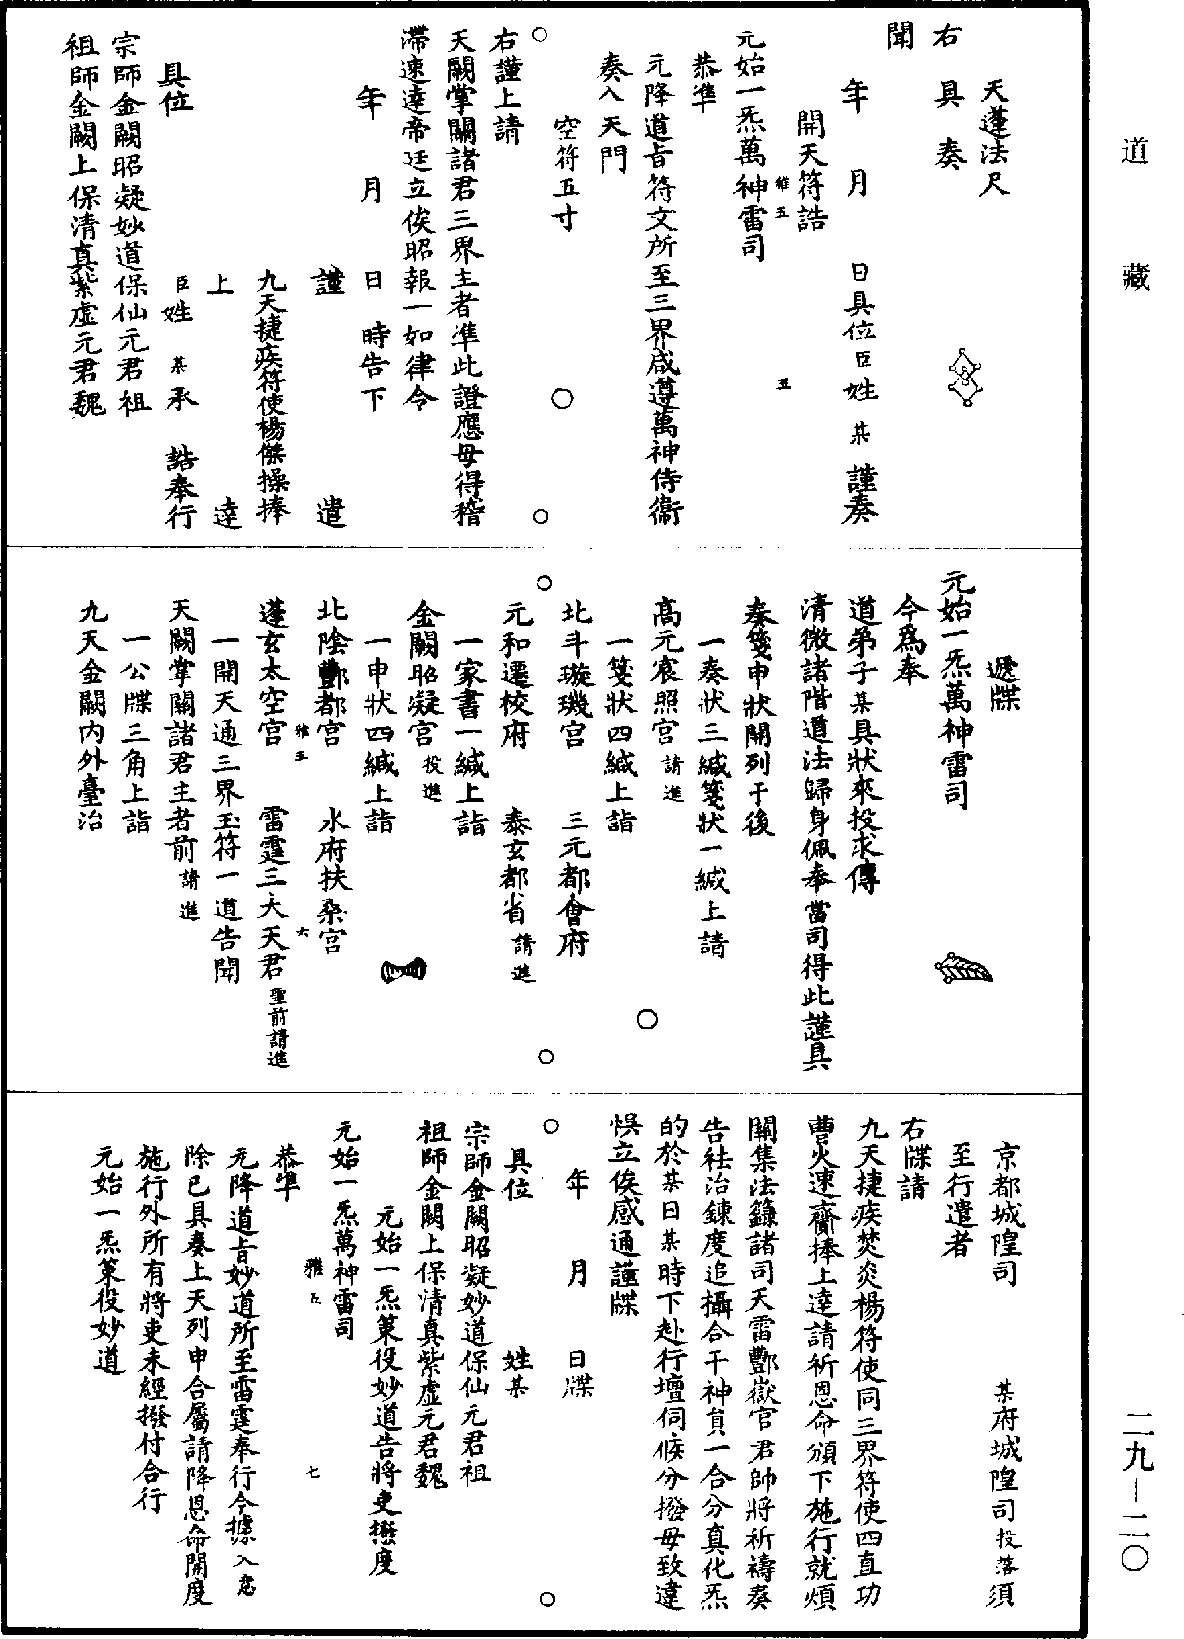 道藏
天蓬法尺
右具奏
聞
年月日具位臣姓某謹奏
開天符誥
雅五
五
元始一炁萬神雷司
恭準
元降道旨符文所至三界咸遵萬神侍衛
奏入天門
空符五寸
右謹上請
天闕掌關諸君三界主者準此證應毋得稽
滯速達帝廷立俟昭報一如律令
年月日時告下
謹遣
九天捷疾符使楊傑操捧
上達
具位臣姓某承誥奉行
宗師金闕昭凝妙道保仙元君祖
祖師金闕上保清真紫虛元君魏
遞牒
元始一炁萬神雷司
今為奉
道弟子某具狀來投求傳
清微諸階道法歸身佩奉當司得此謹具
奏箋申狀開列于後
一奏狀三緘箋狀一緘上請
高元宸照宮請進
一箋狀四緘上詣
北斗璇璣宮三元都會府
元和遷校府泰玄都省請進
一家書一緘上詣
金闕昭凝宮投進
一申狀四緘上詣
北陰酆都宮水府扶桑宮
雅五
六
蓬玄太空宮雷霆三大天君聖前請進
一開天通三界玉符一道告聞
天闕掌關諸君主者前請進
一公牒三角上詣
九天金闕內外臺治
京都城隍司某府城隍司投落須
至行遣者
右牒請
九天捷疾焚炎楊符使同三界符使四直功
曹火速齎捧上達請祈恩命頒下施行就煩
關集法籙諸司天雷酆嶽官君帥將祈禱奏
告祛治鍊度追攝合干神員一合分真化炁
的於某日某時下赴行壇伺候分撥毋致違
悞立俟感通謹牒
年月日牒
具位姓某
宗師金闕昭凝妙道保仙元君祖
祖師金闕上保清真紫虛元君魏
元始一炁策役妙道告將吏攟度
元始一炁萬神雷司
雅五
七
恭準
元降道旨妙道所至雷霆奉行今據入意
除已具奏上天列申合屬請降恩命開度
施行外所有將吏未經撥付合行
元始一炁策役妙道
二九—二〇